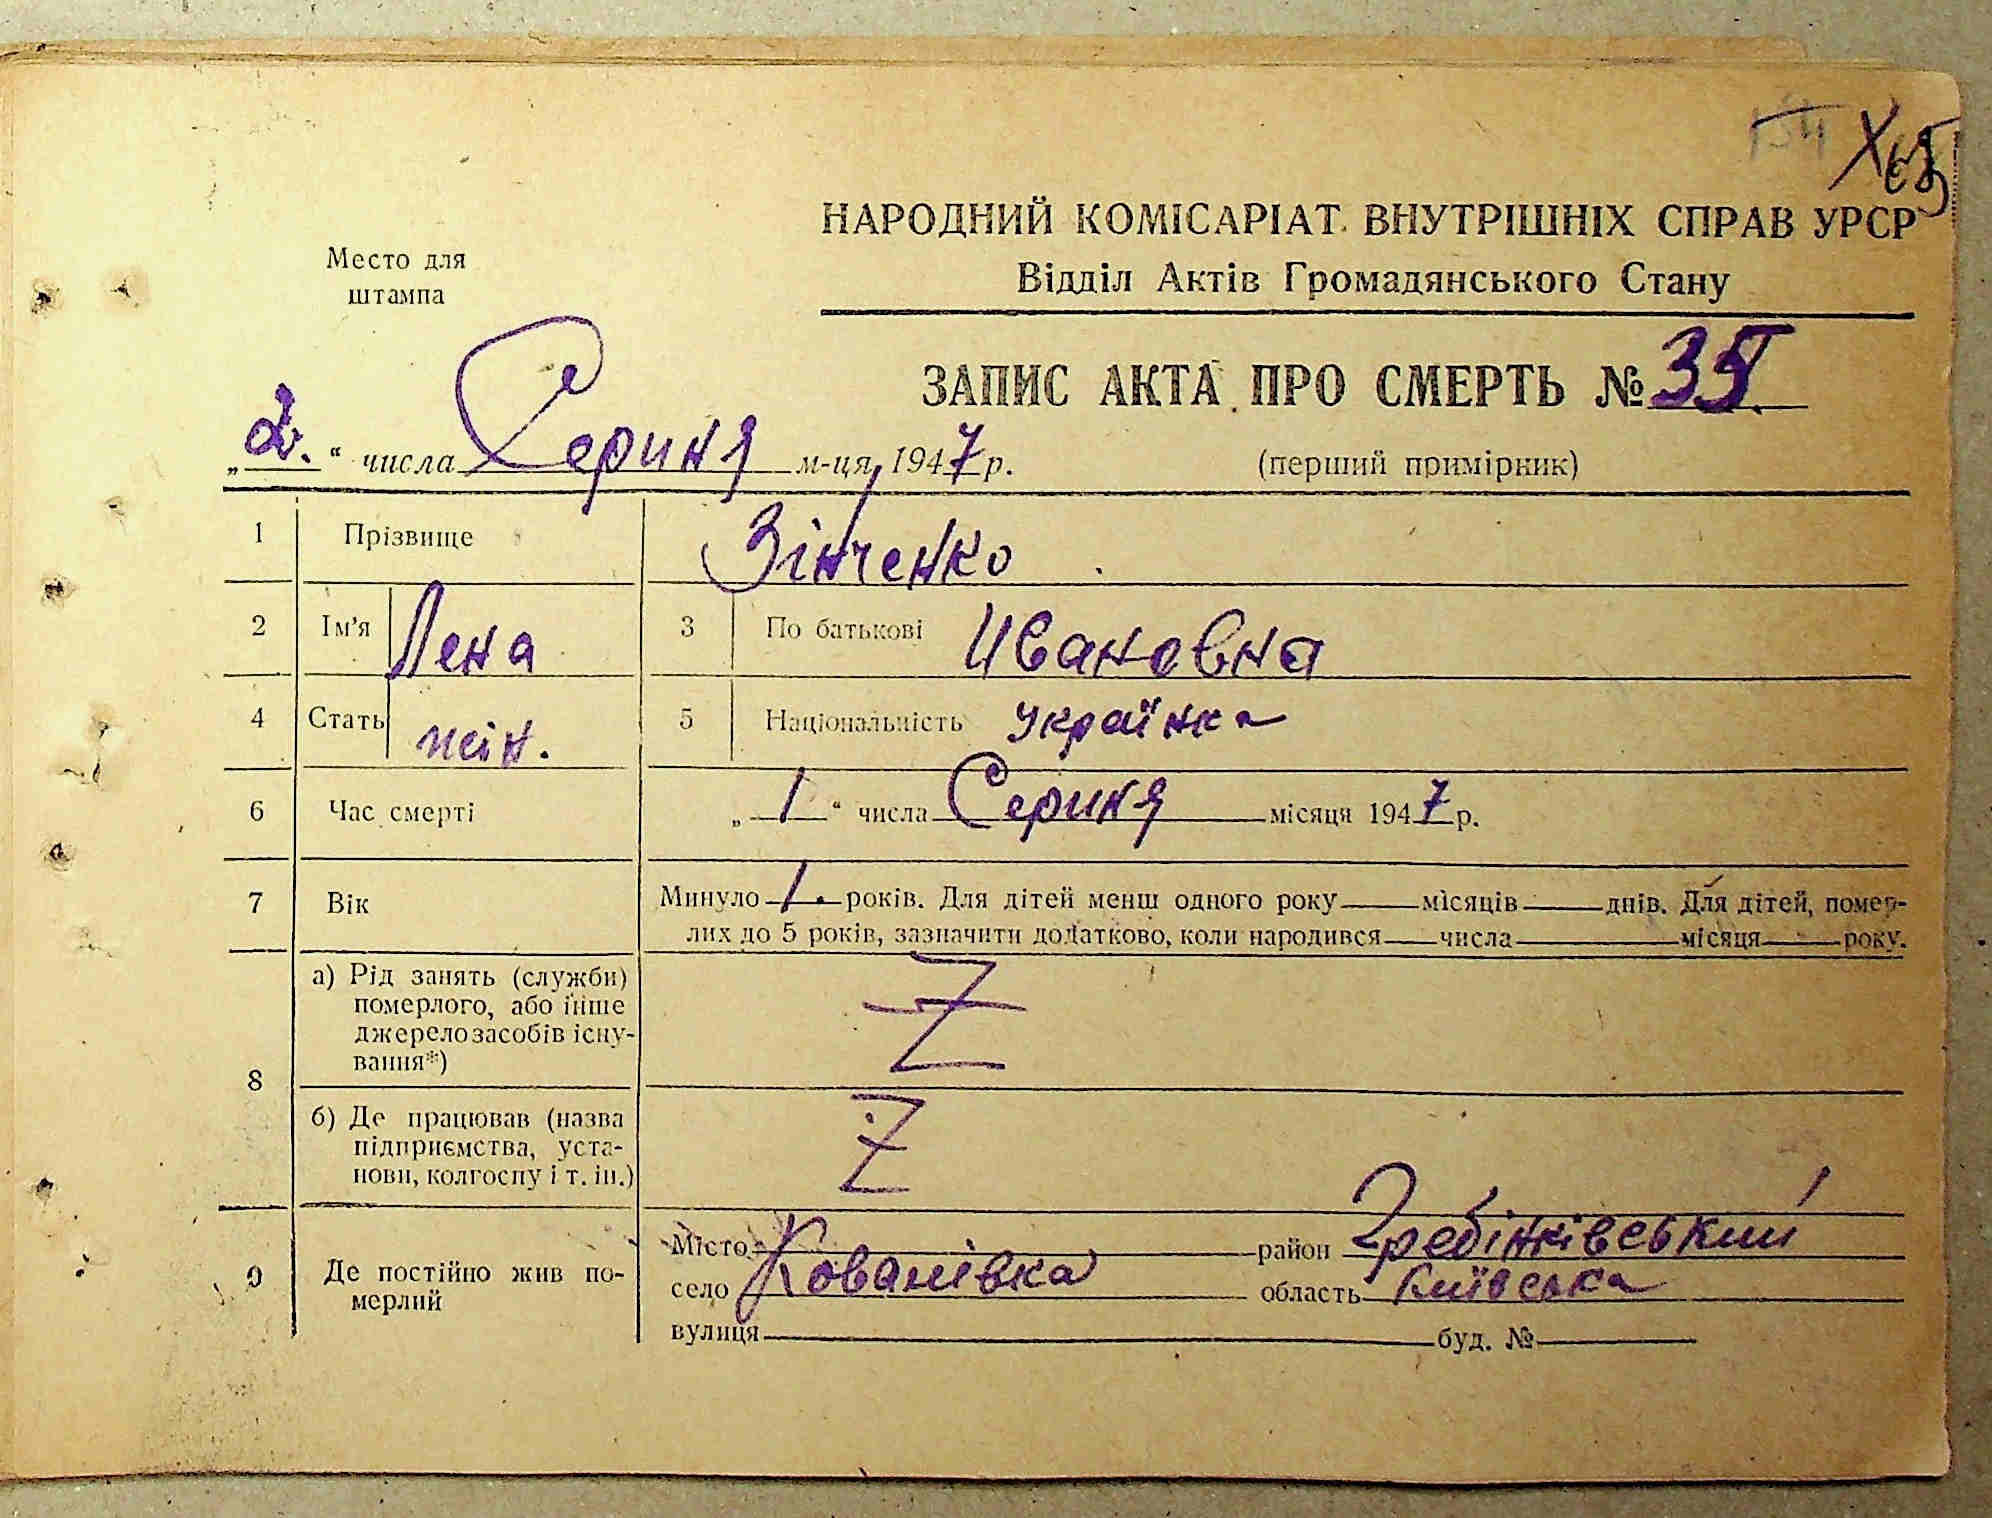 НАРОДНИЙ КОМІСАРІАТ ВНУТРІШНІХ СПРАВ УРСР
Відділ Актів Громадянського Стану
Место для
штампа
ЗАПИС АКТА ПРО СМЕРТЬ № 35
„2.“ числа Сериня м-ця, 1947 р. (перший примірник)
1 Прізвище Зінченко
2 Ім’я Лена 3 По батькові Ивановна
4 Стать жін. 5 Національність українка
6 Час смерті „1“ числа Сериня місяця 1947 р.
7 Вік Минуло 1. років. Для дітей менш одного року місяців днів. Для дітей, помер-
лих до 5 років, зазначити додатково, коли народився числа місяця року.
8 а) Рід занять (служби)
померлого, або інше
джерело засобів існу-
вання*)
Z
б) Де працював (назва
підприємства, уста-
нови, колгоспу і т. ін.)
Z
9 Де постійно жив по-
мерлий
Місто район Гребінківський
село Кованівка область Київська
вулиця буд. №